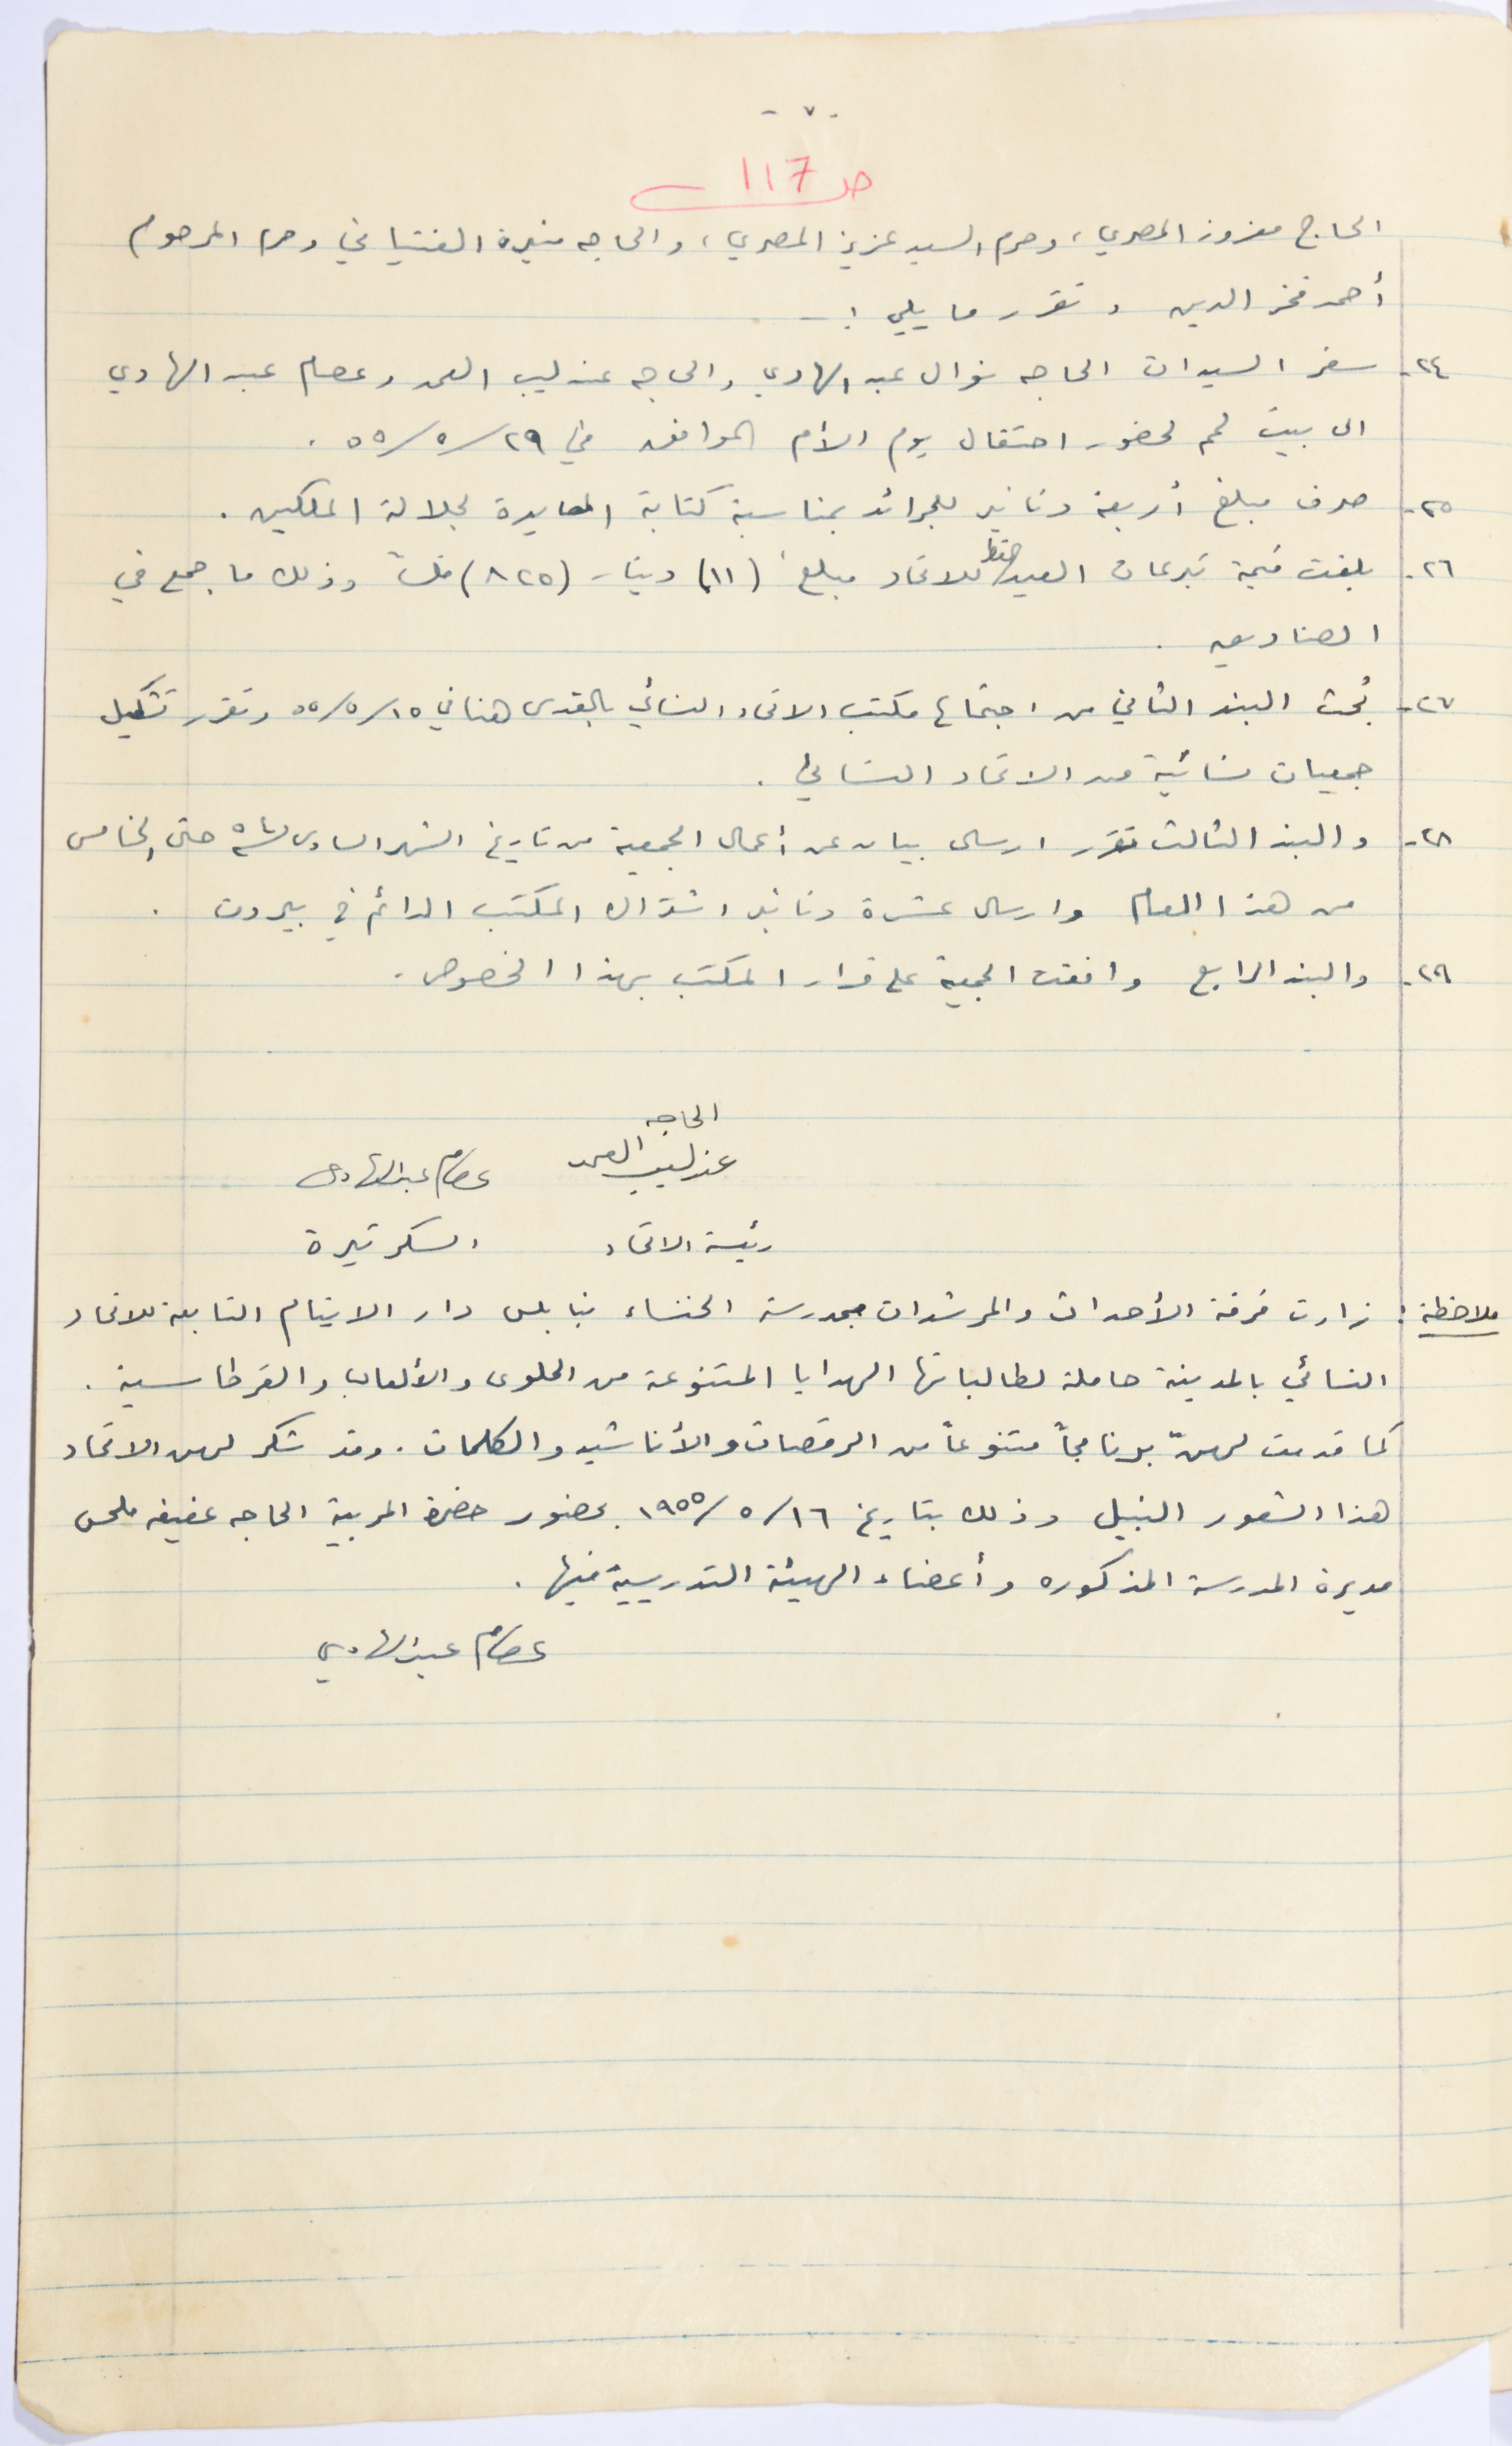 - ٧ -
صـ 117
الحاج معزوز المصري، وحرم السيد عزيز المصري، والحاجه منيرة الفتياني وحرم المرحوم
أحمد فخر الدين وتقرر ما يلي :ـ
٢٤- سفر السيدات الحاجه نوال عبد الهادي والحاجه عندليب العمد وعصام عبد الهادي
الى بيت لحم لحضور احتفال يوم الأم الموافق في ٢٩/٥/٥٥ .
٢٥- صرف مبلغ أربعة دنانير للجرائد بمناسبة كتابة المعايدة لجلالة الملكين .
٢٦- بلغت قيمة تبرعات العيد فقط للاتحاد مبلغ (١١) دينار (٨٢٥) فلساً وذلك ما جمع في
الصناديق .
٢٧- بُحث البند الثاني من اجتماع مكتب الاتحاد النسائي بالقدس هنا في ١٥/٥/٥٥ وتقرر تشكيل
جمعيات نسائية من الاتحاد النسائي .
٢٨- والبند الثالث تقرر ارسال بيان عن أعمال الجمعية من تاريخ الشهر السادس حتى الخامس
من هذا العام وارسال عشرة دنانير اشتراك المكتب الدائم في بيروت .
٢٩- والبند الرابع وافقت الجمعية على قرار المكتب بهذا الخصوص .
الحاجه
عندليب العمد عصام عبد الهادي
رئيسة الاتحاد السكرتيرة
ملاحظة : زارت فرقة الأحداث والمرشدات بمدرسة الخنساء بنابلس دار الايتام التابعة للاتحاد
النسائي بالمدينة حاملة لطالباتها الهدايا المتنوعة من الحلوى والألعاب والقرطاسية .
كما قدمت لهنّ برنامجاً متنوعاً من الرقصات والأناشيد والكلمات . وقد شكر لهن الاتحاد
هذا الشعور النبيل وذلك بتاريخ ١٦/٥/١٩٥٥ بحضور حضرة المربية الحاجه عفيفه ملحس
مديرة المدرسة المذكوره وأعضاء الهيئة التدريسية فيها .
عصام عبد الهادي